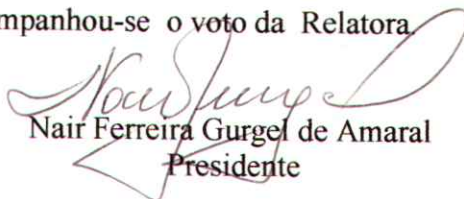 mpanhou-se o voto da Relatora.
Nair Ferreira Gurgel de Amaral
Presidente